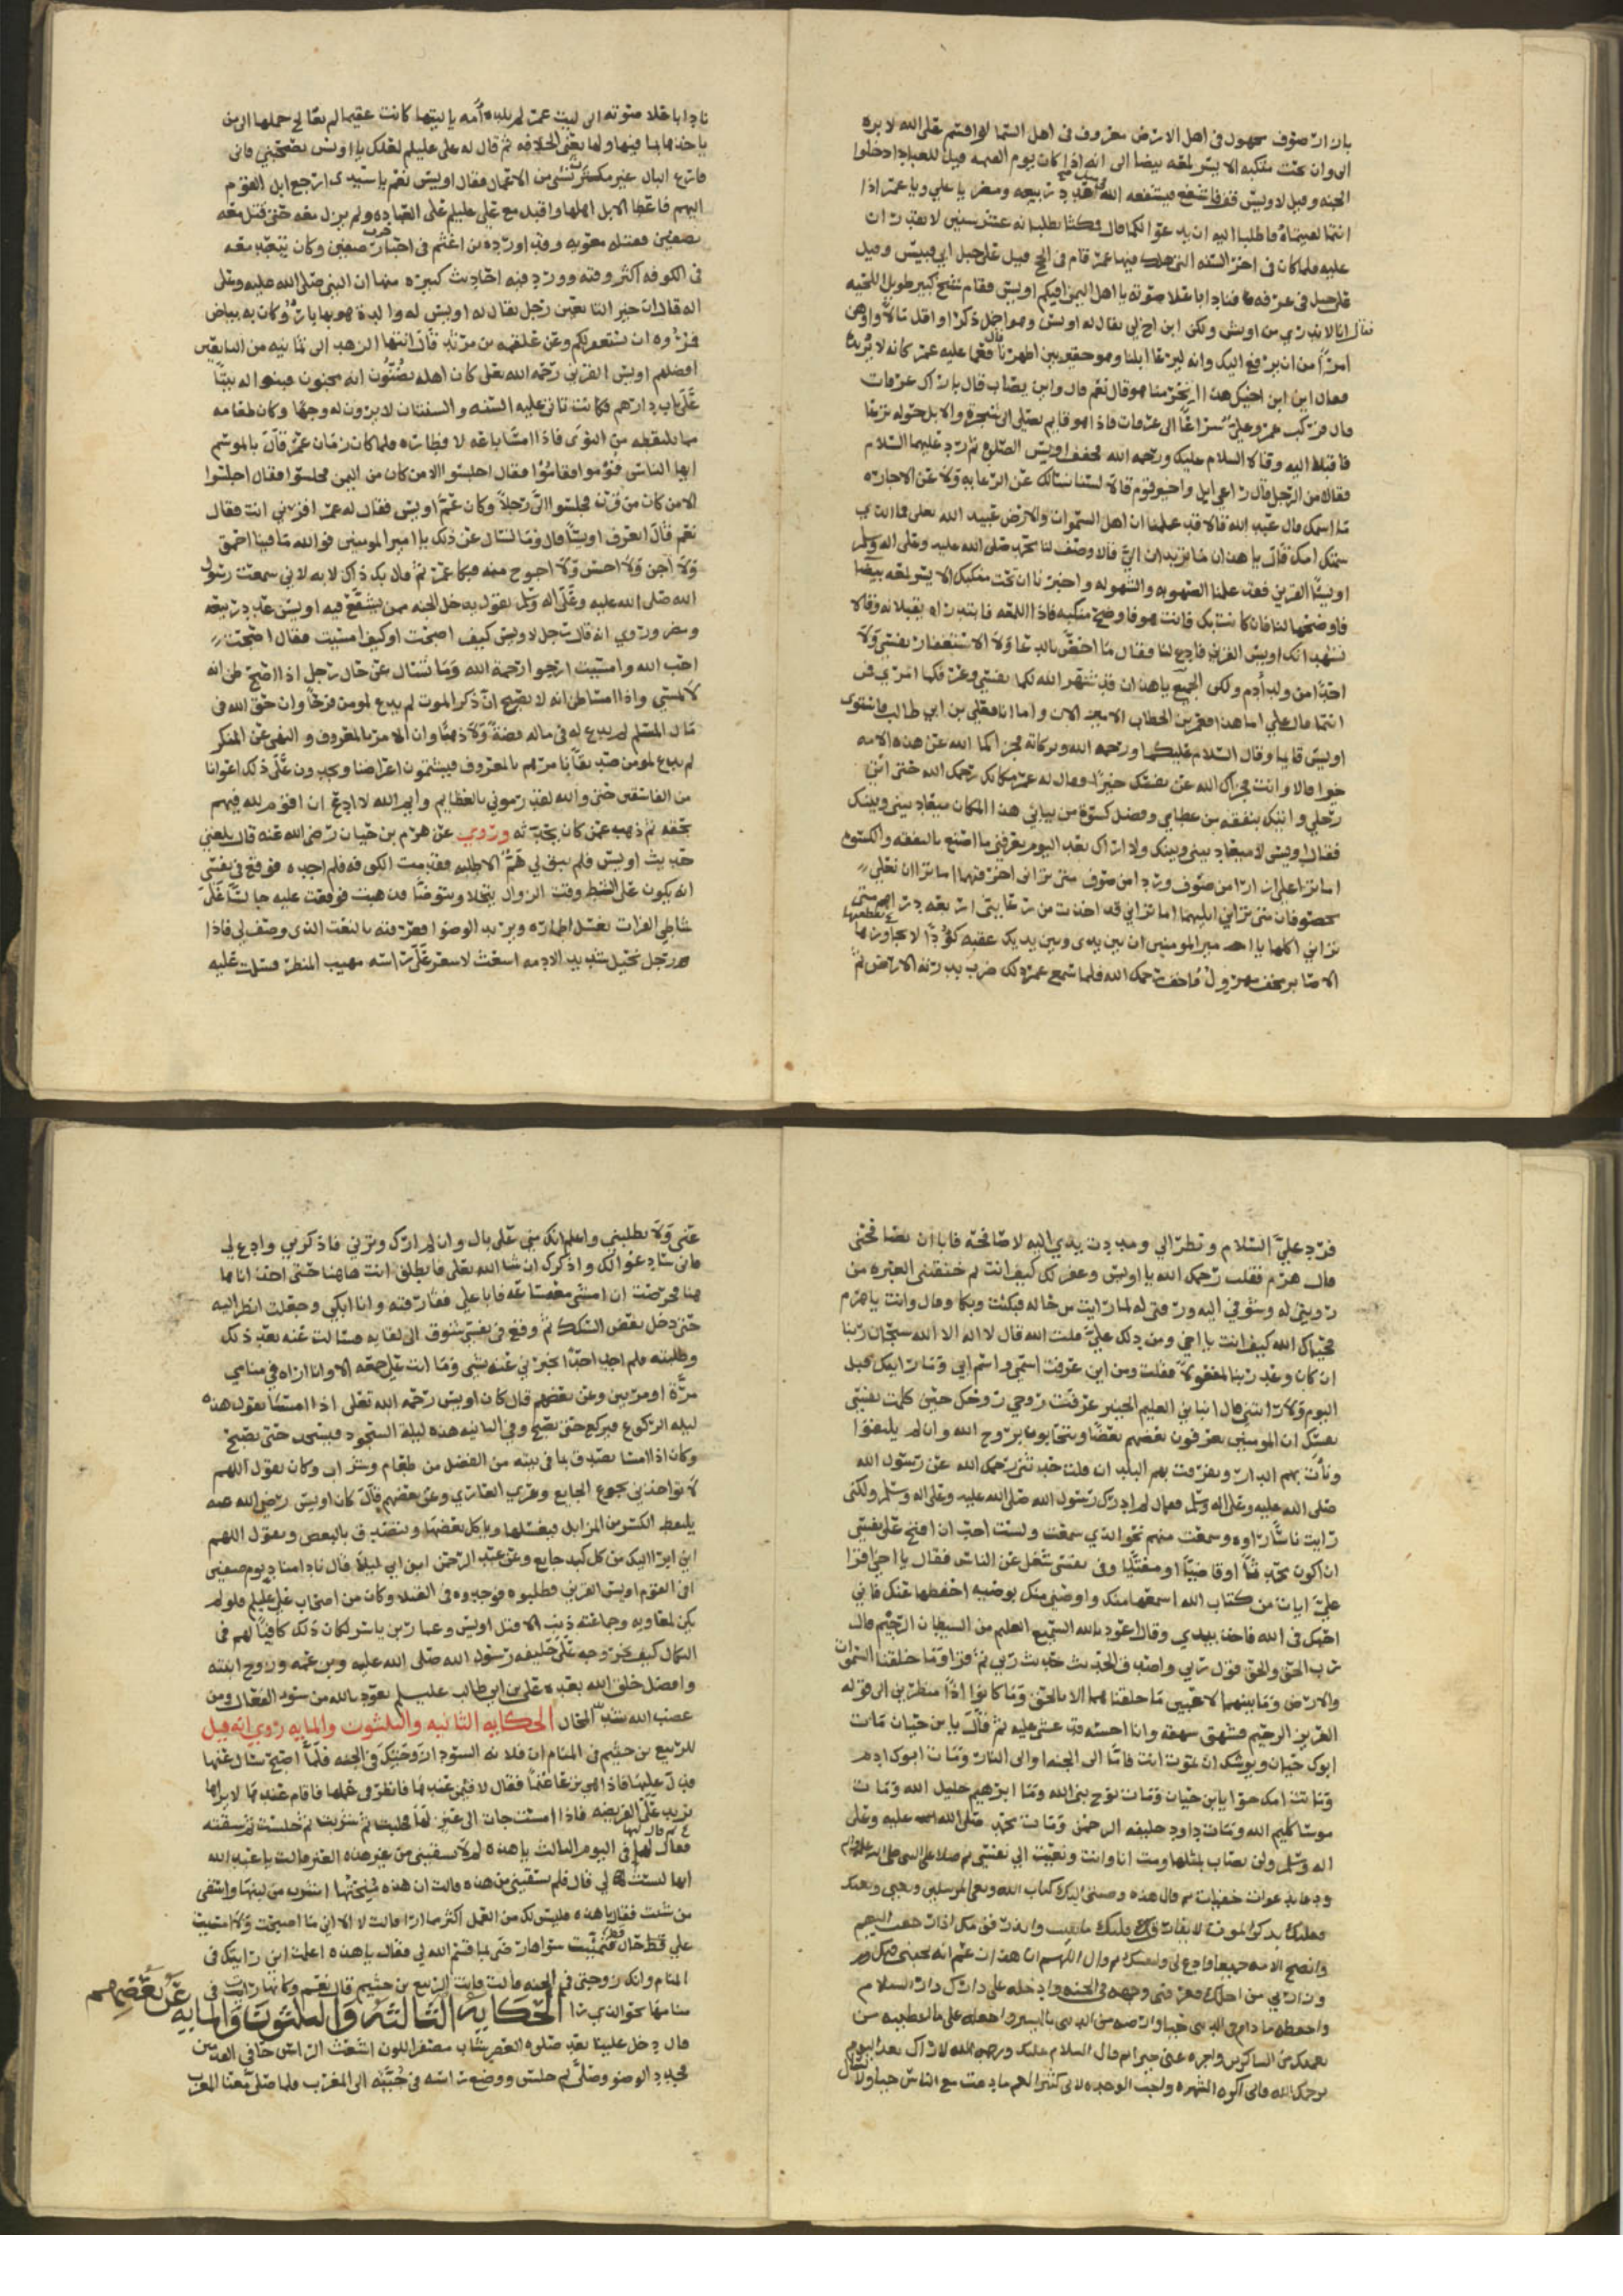 بازار صوف مجهول في اهل الارض معروف في اهل السما لو اقسم على الله لابره
الى وان تحت منكبه الايسر لمعه بيضا الى انه اذا كان يوم القيمه قيل للعباد ادخلوا
الجنه وقيل لاويس قف فاشفع فيشفعه الله في عدد ربيعه ومضر يا علي ويا عمر اذا
انتما لقيتماه فاطلبا اليه ان يدعوا لكما قال فمكثا يطلبانه عشر سنين لا يقدران
عليه فلما كان في اخر السنه التي هلك فيها عمر قام في الحج قيل على جبل ابي قبيس وقيل
على جبل في عرفه فنادا باعلا صوته يا اهل اليمن افيكم اويس فقام شيخ كبير طويل اللحيه
فقال انا لا ندري من اويس ولكن ابن اخ لي يقال له اويس وهو اخمل ذكرا واقل مالا واوهن
امرا من ان يرفع اليك وانه ليرعا ابلنا وهو حقير بين اظهرنا قال فعما عليه عمر كانه لا يريده
فقال اين ابن اخيك هذا ابحرمنا هو قال نعم قال واين يصاب قال باراك عرفات
قال فركب عمر وعلي سراعا الى عرفات فاذا هو قايم يصلي الى شجره والابل حوله ترعا
فاقبلا اليه وقالا السلام عليك ورحمه الله فخفف اويس الصلوه ثم رد عليهما السلام
فقالا من الرجل قال راعي ابل واجير قوم قالا لسنا نسالك عن الرعايه ولا عن الاجاره
ما اسمك قال عبد الله قالا قد علمنا ان اهل السموات والارض عبيد الله تعلى فما الذي
سمتك امك قال يا هذان ما تريدان الي قالا وصف لنا محمد صلى الله عليه وعلى اله وسلم
اويسا القرني فقد علمنا الصهوبه والشهوله واخبرنا ان تحت منكبك الايسر لمعه بيضا
فاوضحها لنا فان كانت بك فانت هو فاوضح منكبه فاذا اللمعه فابتدراه يقبلانه وقالا
نشهد انك اويس القرني فادع لنا فقال ما اخص بالدعا ولا الاستغفار نفسي ولا
احدا من ولد ادم ولكن الجميع يا هذان قد شهر الله لكما نفسي وعرفكما امري فمن
انتما قال علي اما هذا فعمر بن الخطاب الامير الان واما انا فعلي بن ابي طالب فاستوى
اويس قايما وقال السلام عليكما ورحمه الله وبركاته فجزاكما الله عن هذه الامه
خيرا قالا وانت فجزاك الله عن نفسك خيرا وقال له عمر مكانك رحمك الله حتى اتي
رحلي واتيك بنفقه من عطاي وفضل كسوة من ثيابي هذا المكان ميعاد بيني وبينك
فقال اويس لا ميعاد بيني وبينك ولا اراك بعد اليوم يعرفني ما اصنع بالنفقه والكسوه
اما ترا على ازارا من صوف وردا من صوف متى تراني اخرقهما اما ترا ان نعلي
مخصوفان متى تراني ابليهما اما تراني قد اخذت من رعايتي اربعه دراهم متى
تراني اكلها يا امير المومنين ان بين يدي وبين يديك عقبه كؤدا لا يجاوزها
الا ضامر مخف مهزول فاخف رحمك الله فلما سمع عمر ذلك ضرب بدرته الارض ثم
نادا باعلا صوته الى ليت عمر لم تلده امه يا ليتها كانت عقيما لم تعالج حملها الا من
ياخذها بما فيها ولها يعني الخلافه ثم قال له علي عليلم لعلك يا اويس تصحبني فاني
فقال اويس نعم يا سيدي ارجع ابل القوم
اليهم فاعطا الابل اهلها واقبل مع علي عليلم على العباده ولم يزل معه حتى قتل معه
بصفين فقتله معويه وقد اورده بن اعثم في اخبار حرب صفين وكان يتعبد معه
في الكوفه اكثر وقته وورد فيه احاديث كثيره منها ان النبي صلى الله عليه وعلى
اله قال ان خير التابعين رجل يقال له اويس له والدة هو بها بار وكان به بياض
فمروه ان يستغفر لكم وعن علقمه بن مرثد قال انتها الزهد الى ثمانيه من التابعين
افضلهم اويس القرني رحمه الله تعلى كان اهله يظنون انه مجنون فبنوا له بيتا
على باب دارهم فكانت تاتي عليه السنه والسنتان لا يرون له وجها وكان طعامه
مما يلتقطه من النوى فاذا امسا باعه لافطاره فلما كان زمان عمر قال بالموسم
ايها الناس قوموا فقاموا فقال اجلسوا الا من كان من اليمن فجلسوا فقال اجلسوا
الا من كان من قرن فجلسوا الا رجلا وكان عم اويس فقال له عمر اقرني انت فقال
نعم قال اتعرف اويسا قال وما تسال عن ذلك يا امير المومنين فوالله ما فينا احمق
ولا اجن ولا اخس ولا احوج منه فبكا عمر ثم قال بك ذلك لا به لاني سمعت رسول
الله صلى الله عليه وعلى اله وسلم يقول يدخل الجنه ممن يشفع فيه اويس عدد ربيعه
ومضر وروي انه قال رجل لاويس كيف اصبحت او كيف امسيت فقال اصبحت
احب الله وامسيت ارجوا رحمة الله وما تسال عن حال رجل اذا اصبح ظن انه
لا يمسي واذا امسا ظن انه لا يصبح ان ذكر الموت لم يدع لمومن فرحا وان حق الله في
مال المسلم لم يدع له في ماله فضة ولا ذهبا وان الامر بالمعروف والنهي عن المنكر
لم يدع لمومن صديقا نامرهم بالمعروف فيشتمون اعراضنا ويجدون على ذلك اعوانا
من الفاسقين حتى والله لقد رموني بالعظايم وايم الله لا ادع ان اقوم لله فيهم
بحقه ثم ذهب عمن كان يحدثه وروي عن هرم بن حيان رضي الله عنه قال بلغني
حديث اويس فلم يبق لي هم الا طلبه فقدمت الكوفه فلم اجده فوقع في نفسي
انه يكون على الشط وقت الزوال فوقعت عليه جالسا على
شاطي الفرات يغسل اطماره ويريد الوضو فعرفته بالنعت الذي وصف لي فاذا
هو رجل نحيل شديد الادمه اشعث لا سعر على راسه مهيب المنظر فسلمت عليه
فرد علي السلام ونظر الي ومددت يدي اليه لاصافحه فابا ان يصافحني
قال هرم فقلت رحمك الله يا اويس وغفر لك كيف انت ثم خنقتني العبره من
رويتي له وشوقي اليه ورقتي له لما رايت من حاله فبكيت وبكا وقال وانت يا هرم
فحياك الله كيف انت يا اخي ومن دلك علي قلت الله قال لا اله الا الله سبحان ربنا
ان كان وعد ربنا لمفعولا فقلت ومن اين عرفت اسمي واسم ابي وما رايتك قبل
اليوم ولا رايتني قال انباني العليم الخبير عرفت روحي روحك حين كلمت نفسي
نفسك ان المومنين يعرفون بعضهم بعضا ويتحابون بروح الله وان لم يلتقوا
ونات بهم الدار وتفرقت بهم البلدان قلت حدثني رحمك الله عن رسول الله
صلى الله عليه وعلى اله وسلم فقال لم ادرك رسول الله صلى الله عليه وعلى اله وسلم ولكني
رايت ناسا راوه وسمعت منهم نحو الذي سمعت ولست احب ان افتح على نفسي
ان اكون محدثا او قاضيا او مفتيا وفي نفسي شغل عن الناس فقال يا اخي اقرا
علي ايات من كتاب الله اسمعها منك واوصني منك بوصيه احفظها عنك فاني
احبك في الله فاخذ بيدي وقال اعوذ بالله السميع العليم من الشيطان الرجيم قال
رب الحق والحق قول ربي واصدق الحديث حديث ربي ثم قرا وما خلقنا السموات
والارض وما بينهما لاعبين ما خلقناهما الا بالحق وما كانوا اذا منظرين الى قوله
العزيز الرحيم فشهق شهقه وانا احسبه قد غشي عليه ثم قال يا بن حيان مات
ابوك حيان ويوشك ان تموت انت فاما الى الجنه واما الى النار ومات ابوك ادم
وماتت امك حوا يا بن حيان ومات نوح نبي الله وما ابرهيم خليل الله ومات
موسا كليم الله ومات داود خليفه الرحمن ومات محمد صلى الله عليه وعلى
اله وسلم
ودعا بدعوات خفيات ثم قال هذه وصيتي اليك كتاب الله
فعليك بذكر الموت لا يفارق قلبك
وانصح الامه جميعا وادع لي ولنفسك ثم قال اللهم ان هذا زعم انه يحبني فيك
وزارني من اجلك فعرفني وجهه في الجنه وادخله على دارك دار السلام
واحفظه ما دام في الدنيا حيا وارضه من الدنيا باليسير واجعله على ما اعطيته من
نعمتك من الشاكرين واجزه عني خيرا ثم قال السلام عليك ورحمه الله لا اراك بعد اليوم
يرحمك الله فاني اكره الشهره واحب الوحده لاني كثير الهم ما دمت مع الناس حيا ولا تسال
عني ولا تطلبني واعلم انك مني على بال وان لم ارك وترني فاذكرني وادع لي
فاني سادعوا لك واذكرك ان شا الله تعلى فانطلق انت هاهنا حتى اخذ انا ها
هنا فحرصت ان امشي معه ساعه فابا علي ففارقته وانا ابكي وجعلت انظر اليه
حتى دخل بعض السكك ثم وقع في نفسي شوق الى لقايه فسالت عنه بعد ذلك
وطلبته فلم اجد احدا يخبرني عنه بشي وما اتت علي جمعه الا وانا اراه في منامي
مرة او مرتين وعن بعضهم قال كان اويس رحمه الله تعلى اذا امسا يقول هذه
ليله الركوع فيركع حتى يصبح وفي الثانيه هذه ليلة السجود فيسجد حتى يصبح
وكان اذا امسا تصدق بما في بيته من الفضل من طعام وشراب وكان يقول اللهم
لا تواخذني بجوع الجايع وعري العاري وعن بعضهم قال كان اويس رضي الله عنه
يلتقط الكسر من المزابل فيغسلها وياكل بعضها ويتصدق بالبعض ويقول اللهم
اني ابرا اليك من كل كبد جايع وعن عبد الرحمن ابن ابي ليلا قال نادا مناد يوم صفين
افي القوم اويس القرني فطلبوه فوجدوه في القتلا وكان من اصحاب علي عليلم فلو لم
يكن لمعاويه وجماعته ذنب الا قتل اويس وعمار بن ياسر لكان ذلك كافيا لهم في
النكال كيف خروجه على خليفه رسول الله صلى الله عليه وبن عمه وزوج ابنته
وافضل خلق الله بعده علي بن ابي طالب عليلم نعوذ بالله من سوء الفعال ومن
غضب الله شديد المحال الحكايه الثانيه والثلثون والمايه روي انه قيل
للربيع بن خثيم في المنام ان فلانه السودا زوجتك في الجنه فلما اصبح سال عنها
فدل عليها فاذا هي ترعا غنما فقال لا قيمن عندها فانظر في عملها فاقام عندها لا يراها
تزيد على الفريضه فاذا امست جات الى عنز لها فحلبت ثم شربت ثم حلبت ثم سقته
فقال لها في اليوم الثالث يا هذه لم لا تسقيني من غير هذه العنز قالت يا عبد الله
انها ليست لي قال فلم تسقيني من هذه قالت ان هذه منحتها اشرب من لبنها واسقي
من شئت فقال يا هذه فليس لك من العمل اكثر مما ارا قالت لا الا اني ما اصبحت ولا امسيت
على قط حال فتمنيت سواها رضى لما قسم الله لي فقال يا هذه اعلمت اني رايتك في
المنام وانك زوجتي في الجنه قالت فانت الربيع بن خثيم قال نعم وكانها رات في
منامها نحو الذي را الحكاية الثالثه والثلثون والمايه عن بعضهم
قال دخل علينا بعد صلوه العصر شاب مصفر اللون اشعث الراس حافي القدمين
فجدد الوضو وصلى ثم جلس ووضع راسه في جبته الى المغرب فلما صلى معنا المغرب